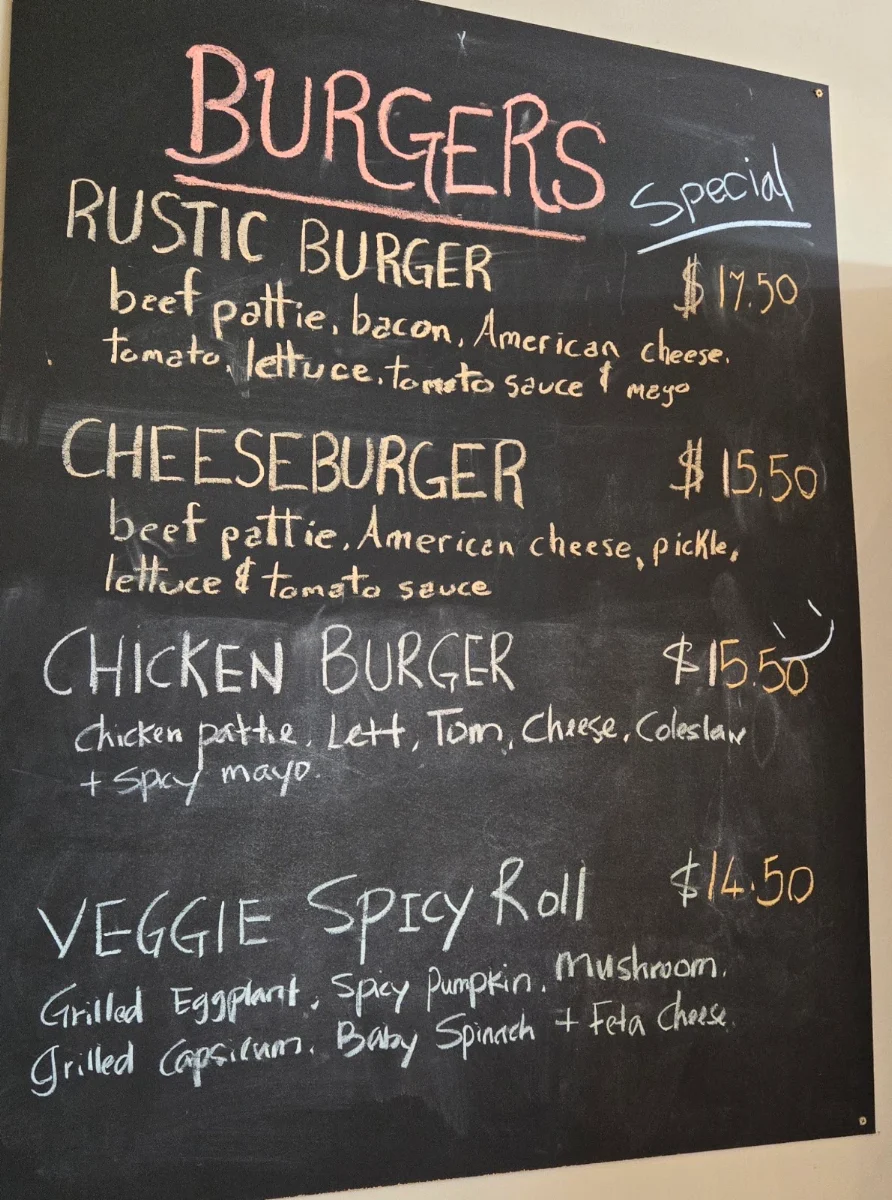 BURGERS
Special
RUSTIC BURGER $17.50
beef pattie, bacon, American cheese,
tomato, lettuce, tomato sauce & mayo
CHEESEBURGER $15.50
beef pattie, American cheese, pickle,
lettuce & tomato sauce
CHICKEN BURGER $15.50
chicken pattie, Lett, Tom, Cheese, Coleslaw
+ Spicy mayo.
VEGGIE SPICY Roll $14.50
Grilled Eggplant, Spicy Pumpkin, Mushroom,
Grilled Capsicum, Baby Spinach + Feta Cheese.